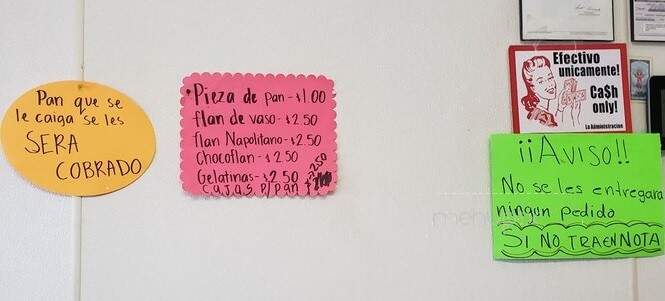 Pan que se
le caiga se les
SERA
COBRADO
•Pieza de pan-$1.00
flan de vaso-$2.50
flan Napolitano-$2.50
Chocoflan-$2.50
Gelatinas-$2.50
Cajas p/pan $2.50
Efectivo
unicamente!
Ca$h
only!
La Administracion
¡¡AVISO!!
No se les entregara
ningun pedido
SI NO TRAEN NOTA